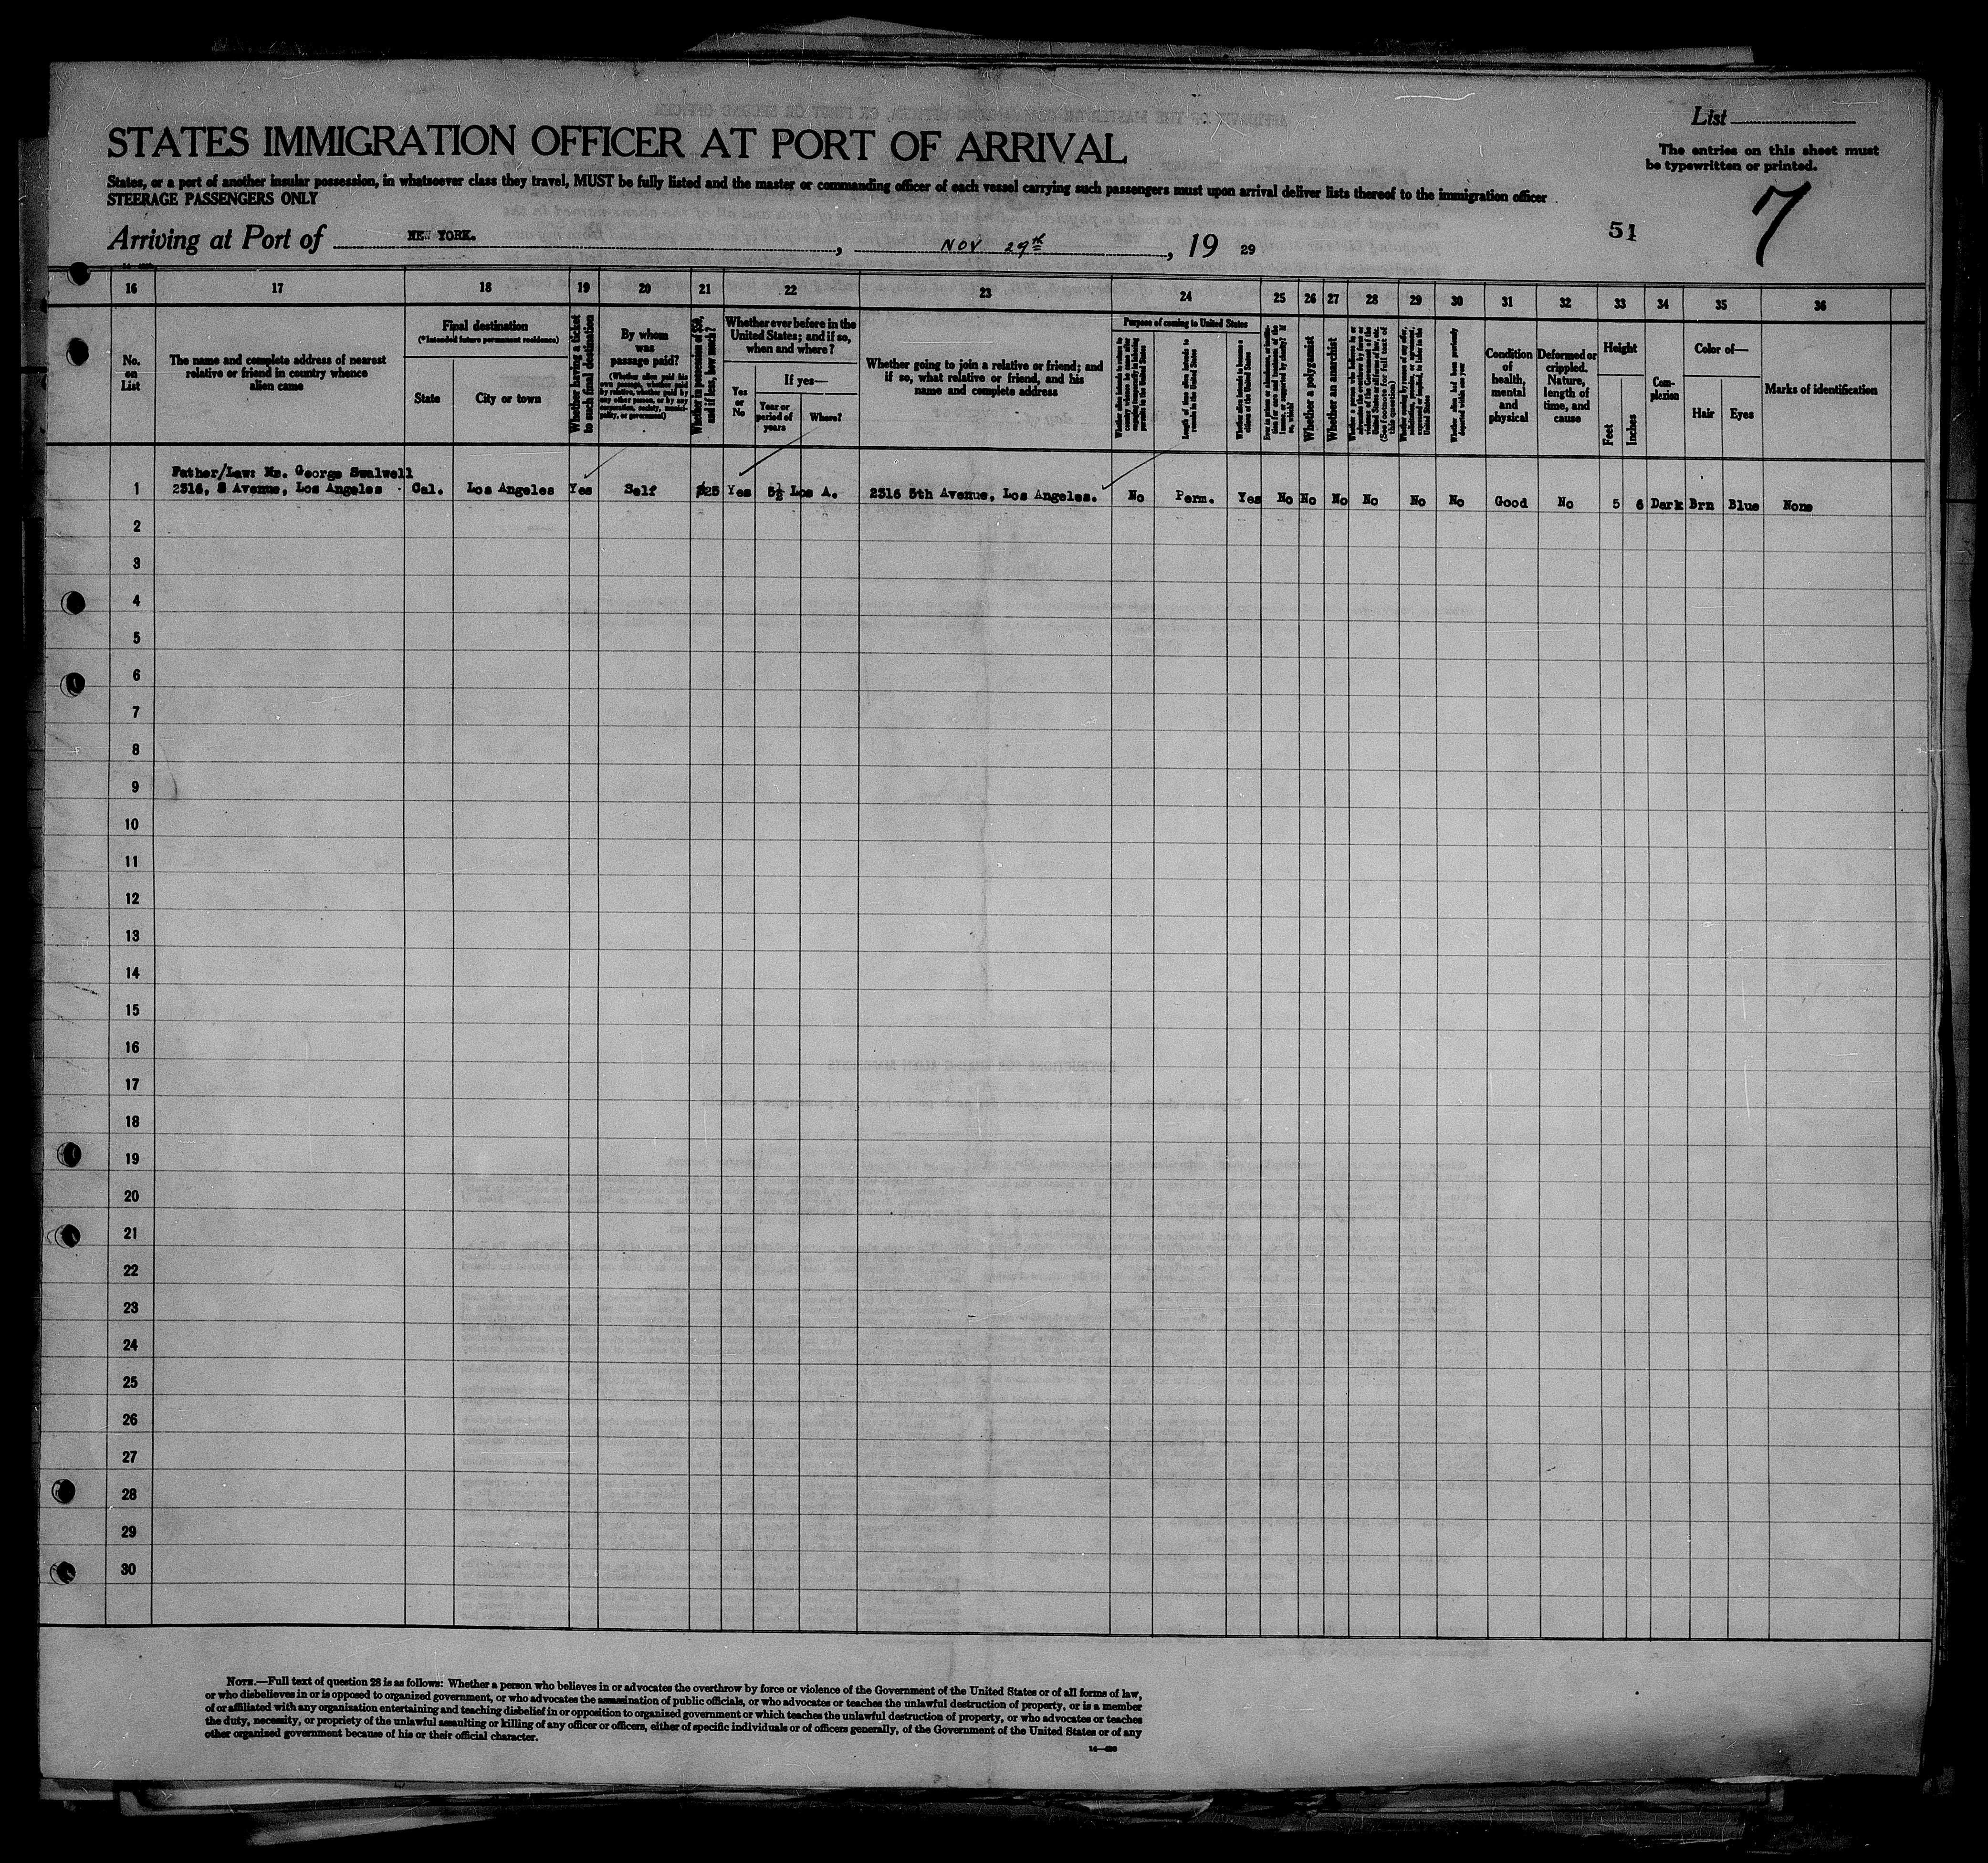 List
STATES IMMIGRATION OFFICER AT PORT OF ARRIVAL
The entries on this sheet must
be typewritten or printed.
States, or a port of another insular possession, in whatsoever class they travel, MUST be fully listed and the master or commanding officer of each vessel carrying such passengers must upon arrival deliver lists thereof to the immigration officer
STEERAGE PASSENGERS ONLY
7
51
Arriving at Port of NEW YORK. , NOV 29th , 19 29
16 17 18 19 20 21 22 23 24 25 26 27 28 29 30 31 32 33 34 35 36
No. on List
The name and complete address of nearest relative or friend in country whence alien came
Final destination
(*Intended future permanent residence)
State
City or town
Whether having a ticket to such final destination
By whom was passage paid?
(Whether alien paid his own passage, whether paid by relative, whether paid by any other person, or by any corporation, society, municipality, or government)
Whether in possession of $50, and if less, how much?
Whether ever before in the United States; and if so, when and where?
Yes or No
If yes—
Year or period of years
Where?
Whether going to join a relative or friend; and if so, what relative or friend, and his name and complete address
Purpose of coming to United States
Length of time alien intends to remain in the United States
Whether alien intends to become a citizen of the United States
Whether a polygamist
Whether an anarchist
Whether alien had been previously deported within one year
Condition of health, mental and physical
Deformed or crippled. Nature, length of time, and cause
Height
Feet
Inches
Complexion
Color of—
Hair
Eyes
Marks of identification
Father/Law: Mr. George Swalwell
1 2316, 8 Avenue, Los Angeles Cal. Los Angeles Yes Self $25 Yes 5½ Los A. 2316 5th Avenue, Los Angeles. No Perm. Yes No No No No No No Good No 5 6 Dark Brn Blue None
2
3
4
5
6
7
8
9
10
11
12
13
14
15
16
17
18
19
20
21
22
23
24
25
26
27
28
29
30
NOTE.—Full text of question 28 is as follows: Whether a person who believes in or advocates the overthrow by force or violence of the Government of the United States or of all forms of law,
or who disbelieves in or is opposed to organized government, or who advocates the assassination of public officials, or who advocates or teaches the unlawful destruction of property, or is a member
of or affiliated with any organization entertaining and teaching disbelief in or opposition to organized government or which teaches the unlawful destruction of property, or who advocates or teaches
the duty, necessity, or propriety of the unlawful assaulting or killing of any officer or officers, either of specific individuals or of officers generally, of the Government of the United States or of any
other organized government because of his or their official character.